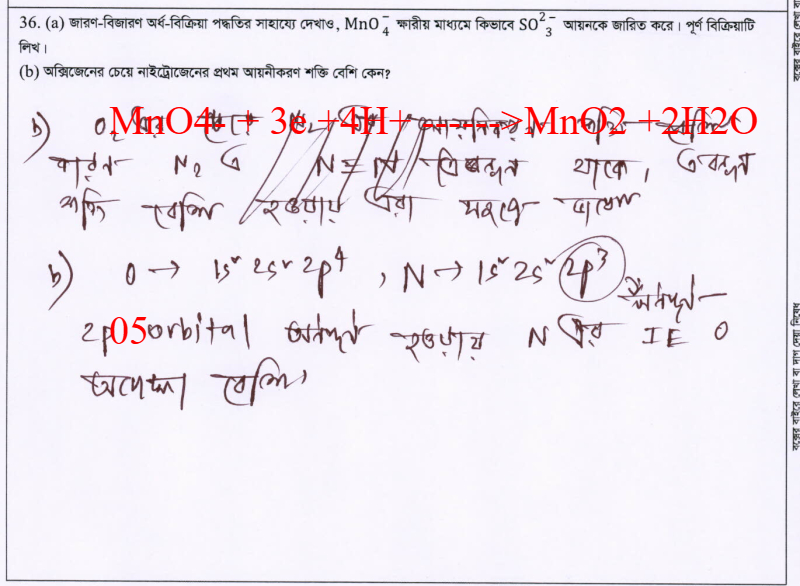 36. (a) জারণ-বিজারণ অর্ধ-বিক্রিয়া পদ্ধতির সাহায্যে দেখাও, MnO₄⁻ ক্ষারীয় মাধ্যমে কিভাবে SO₃²⁻ আয়নকে জারিত করে। পূর্ণ বিক্রিয়াটি
লিখ।
(b) অক্সিজেনের চেয়ে নাইট্রোজেনের প্রথম আয়নীকরণ শক্তি বেশি কেন?
MnO4- + 3e +4H+ ------->MnO2 +2H2O
b) O₂
কারন N₂ তে N≡N ত্রিবন্ধন থাকে, এ বন্ধন
শক্তি বেশি হওয়ায় এরা সহজে
b) O → 1s² 2s² 2p⁴ , N → 1s² 2s² 2p³
অর্ধপূর্ণ
2p orbital অর্ধপূর্ণ হওয়ায় N এর IE O
05
অপেক্ষা বেশি।
বক্সের বাইরে লেখা বা দাগ দেয়া নিষেধ